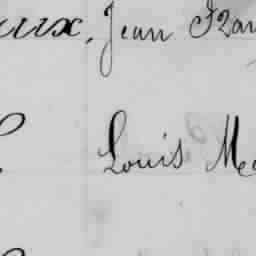 aux, Jean Fran
Louis Me